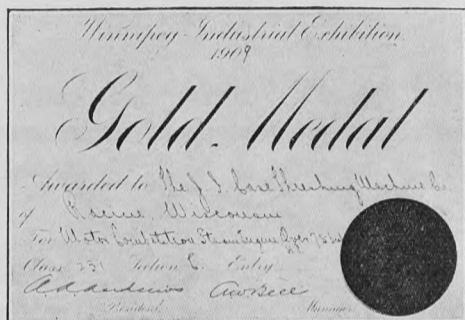 Winnipeg Industrial Exhibition
1909
Gold Medal
Awarded to The J. I. Case Threshing Machine Co.
of Racine, Wisconsin
For Motor Competition Steam Engine
Class 231 Section C Entry
A.A. Andrews A.W. Bell
President Manager